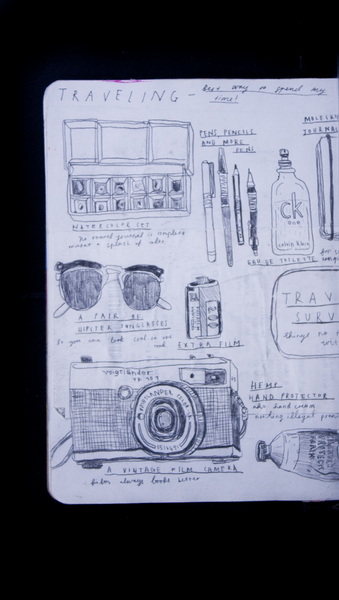 TRAVELING - Best way to spend my
time!
PENS, PENCILS
AND MORE
PENS
MOLES
JOURNAL
ck
one
calvin klein
EAU DE TOILETTE
WATERCOLOR SET
No travel journal is complete
without a splash of color
A PAIR OF
HIPSTER SUNGLASSES
So you can look cool as you
EXTRA FILM
TRAV
SURV
things not to
voigtländer
VOIGTLÄNDER
HEMP
HAND PROTECTOR
aka hand cream
nothing illegal
HEMP
A VINTAGE FILM CAMERA
film always looks better